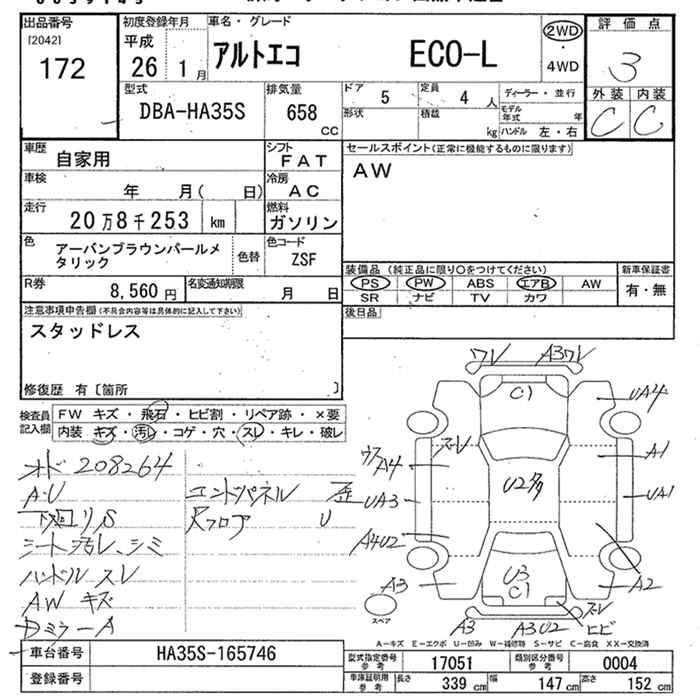 出品番号
[2042]
172
初度登録年月
平成
26 1 月
車名・グレード
アルトエコ ECO-L
2WD
・
4WD
評価点
3
外装 内装
C C
型式
DBA-HA35S
排気量
658
cc
ドア 5
定員 4 人
形状
積載 kg
ディーラー・並行
モデル年式 年
ハンドル 左・右
車歴
自家用
シフト
FAT
車検
年 月( 日)
冷房
AC
走行
20万8千253 km
燃料
ガソリン
色
アーバンブラウンパールメ
タリック
色替
色コード
ZSF
R券
8,560 円
名変通知期限
月 日
セールスポイント(正常に機能するものに限ります)
AW
装備品 (純正品に限り○をつけてください)
PS PW ABS エアB AW
SR ナビ TV カワ
新車保証書
有・無
後日品
注意事項申告欄(不具合内容等は具体的に記入して下さい)
スタッドレス
修復歴 有〔箇所 〕
検査員
記入欄
FW キズ・飛石・ヒビ割・リペア跡・×要
内装 キズ・汚れ・コゲ・穴・スレ・キレ・破レ
オド 208264
A・U
下廻リ S
シート汚レ、シミ
ハンドル スレ
AW キズ
Dミラー A
エンドパネル 歪
Rフロア U
ワレ
A3ワレ
C1
UA4
スレ
A4
A1
UA3
U2多
UA1
A4U2
A3
U3
C1
A2
スレ
ヒビ
A3
A3U2
スペア
A-キズ E-エクボ U-凹み W-補修跡 S-サビ C-腐食 XX-交換済
車台番号
HA35S-165746
登録番号
型式指定番号
参考
17051
類別区分番号
参考
0004
車庫証明用
参考
長さ 339 cm
幅 147 cm
高さ 152 cm